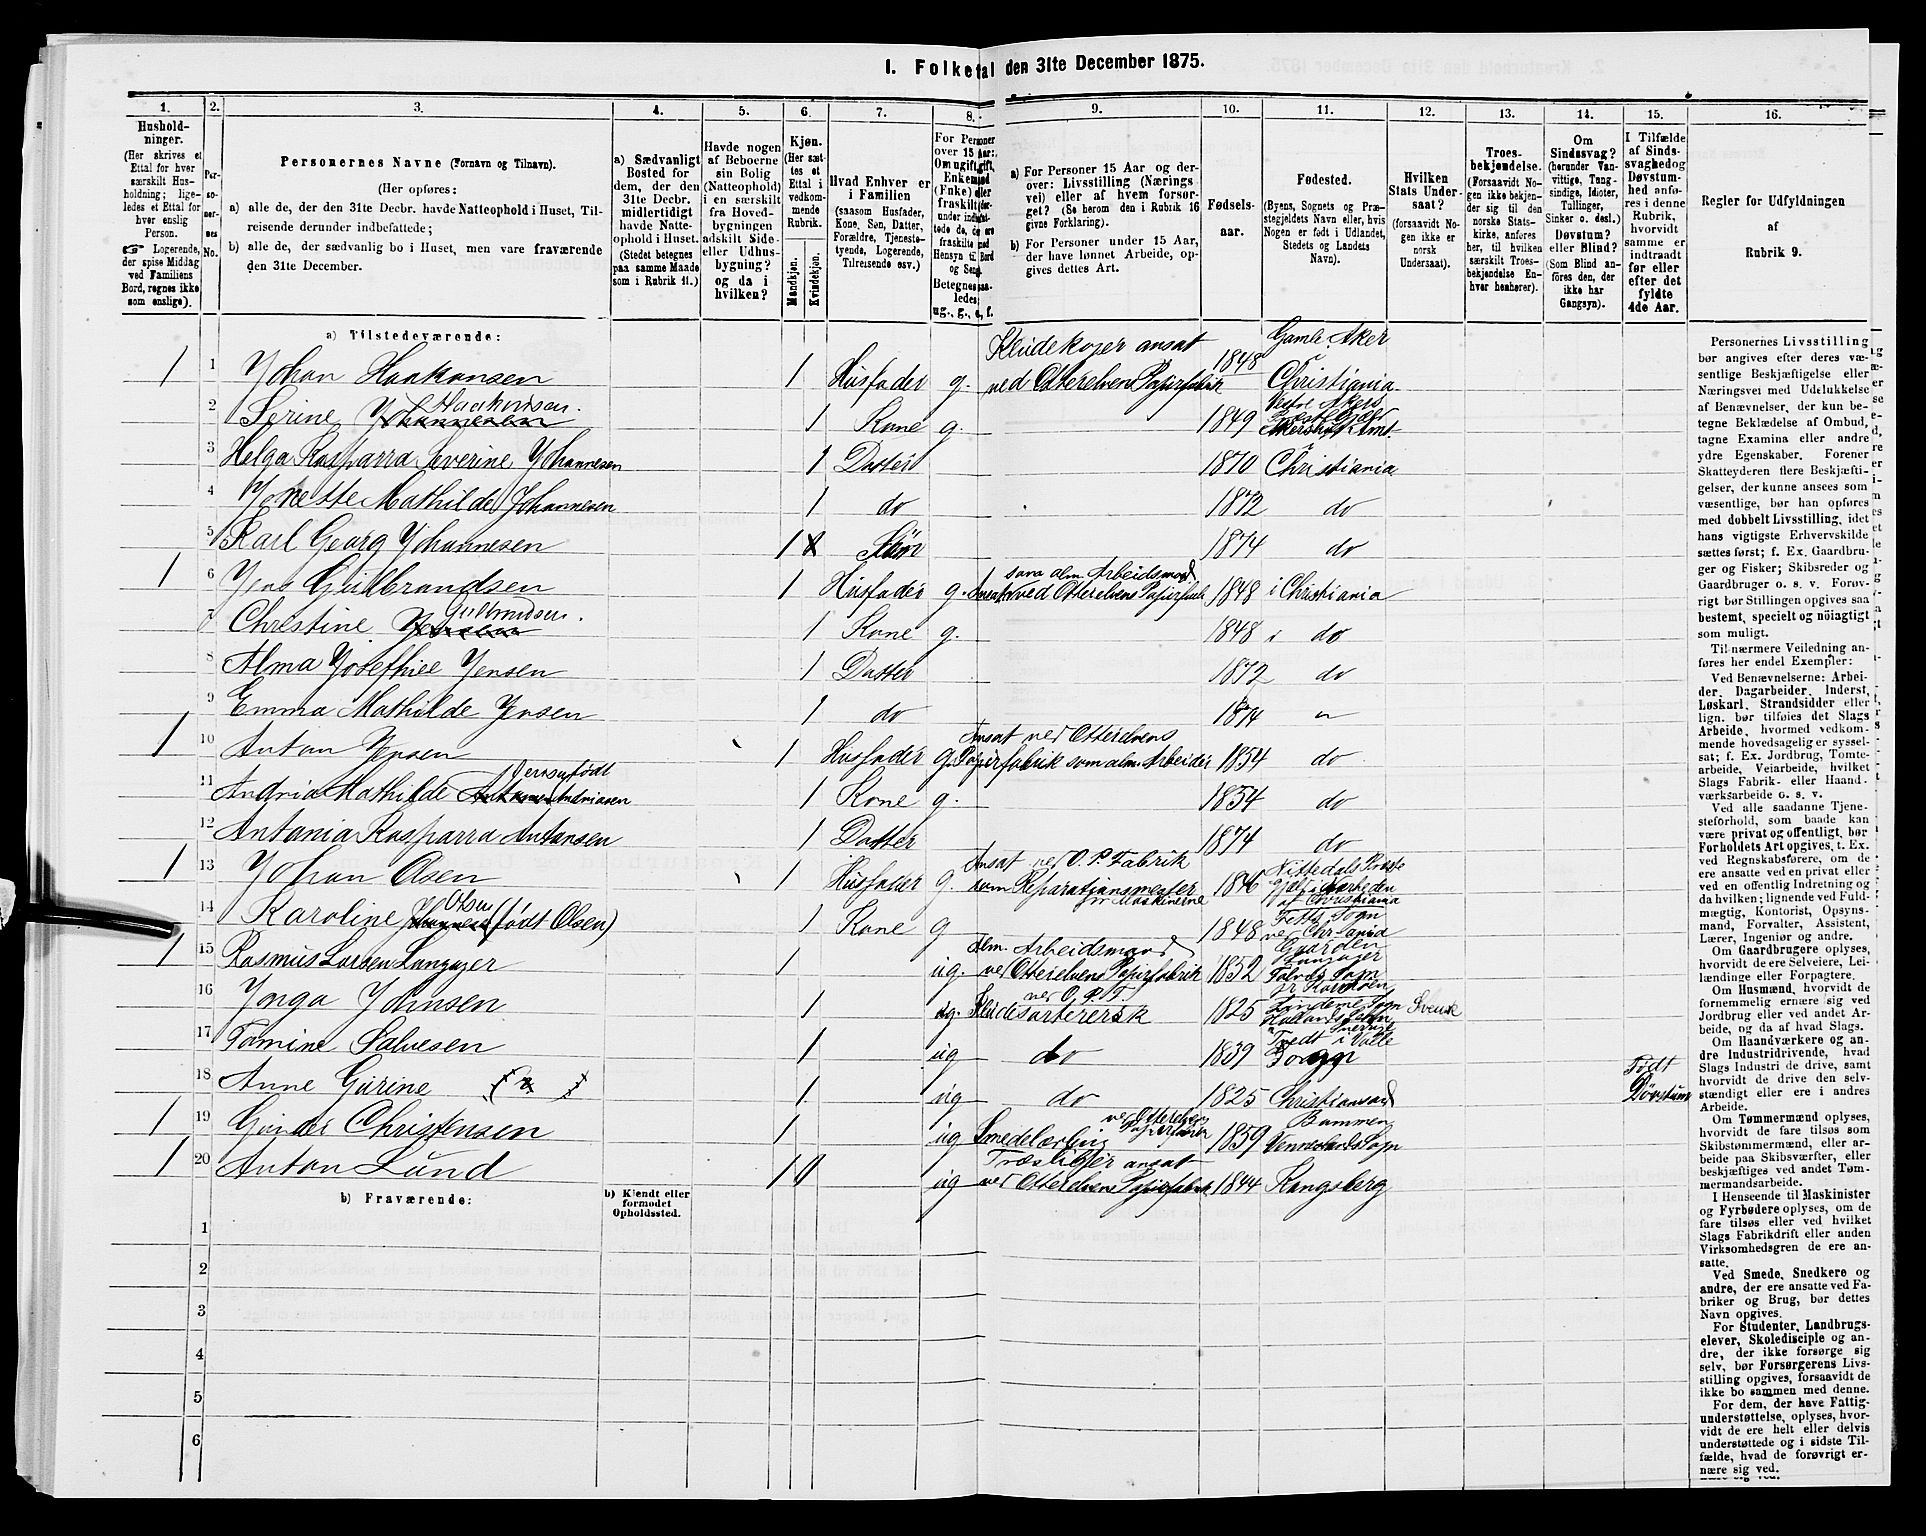 1. Folketal den 31te December 1875.
1. 2. 3. 4. 5. 6. 7. 8. 9. 10. 11. 12. 13. 14. 15. 16.
Hushold-
ninger.
(Her skrives et
Ettal for hver
særskilt Hus-
holdning; lige-
ledes et Ettal for
hver enslig
Person.
☞ Logerende,
der spise Middag
ved Familiens
Bord, regnes ikke
som enslige).
Per-
so-
ner-
nes
No.
Personernes Navne (Fornavn og Tilnavn).
(Her opføres:
a) alle de, der den 31te Decbr. havde Natteophold i Huset, Til-
reisende derunder indbefattede;
b) alle de, der sædvanlig bo i Huset, men vare fraværende
den 31te December.
a) Sædvanligt
Bosted for
dem, der den
31te Decbr.
midlertidigt
havde Natte-
ophold i Huset.
(Stedet betegnes
paa samme Maade
som i Rubrik 11.)
Havde nogen
af Beboerne
sin Bolig
(Natteophold)
i en særskilt
fra Hoved-
bygningen
adskilt Side-
eller Udhus-
bygning?
og da i
hvilken?
Kjøn.
(Her sæt-
tes et
Ettal i
vedkom-
mende
Rubrik.
Mandkjøn.
Kvindekjøn.
Hvad Enhver er
i Familien
(saasom Husfader,
Kone, Søn, Datter,
Forældre, Tjeneste-
tyende, Logerende,
Tilreisende osv.)
For Personer
over 15 Aar:
Om ugift, gift,
Enkemand
(Enke) eller
fraskilt
Betegnes saa-
ledes:
ug., g., e, f.
a) For Personer 15 Aar og der-
over: Livsstilling (Nærings
vei) eller af hvem forsør-
get? (Se herom den i Rubrik 16
givne Forklaring).
b) For Personer under 15 Aar,
der have lønnet Arbeide, op-
gives dettes Art.
Fødsels-
aar.
Fødested.
(Byens, Sognets og Præ-
stegjeldets Navn eller, hvis
Nogen er født i Udlandet,
Stedets og Landets
Navn).
Hvilken
Stats Under-
saat?
(forsaavidt No-
gen ikke er
norsk
Undersaat).
Troes-
bekjendelse.
(Forsaavidt No-
gen ikke bekjen-
der sig til den
norske Stats-
kirke, anføres
her, til hvilken
særskilt Troes-
bekjendelse En-
hver henhører).
Om
Sindssvag?
(herunder Van-
vittige, Tung-
sindige, Idioter,
Tullinger,
Sinker o. desl.)
Døvstum?
eller Blind?
(Som Blind an-
føres den, der
ikke har
Gangsyn).
I Tilfælde
af Sinds-
svaghed og
Døvstum-
hed anfø-
res i denne
Rubrik,
hvorvidt
samme er
indtraadt
før eller
efter det
fyldte
4de Aar.
Regler for Udfyldningen
af
Rubrik 9.
a) Tilstedeværende:
1 1 Johan Haakonsen 1 Husfader g. Kludekoger ansat ved Otterelvens Papirfabrik 1848 Gamle Aker Christiania
2 Serine Johannesen Haakonsen. 1 Kone g. 1849 Vestre Akers Præstegjeld Akershus Amt.
3 Helga Kasparra Severine Johannesen 1 Datter 1870 Christiania
4 Jonette Mathilde Johannesen 1 do 1872 do
5 Karl Georg Johannesen 1 Søn 1874 do
1 6 Jens Gulbrandsen 1 Husfader g. Ansat ved Otterelvens Papirfabrik som alm. Arbeidsmand 1848 i Christiania
7 Christine Jensen Gulbrandsen. 1 Kone g. 1848 i do
8 Alma Josefhine Jensen 1 Datter 1872 do
9 Emma Mathilde Jensen 1 do 1874 "
1 10 Anton Jensen 1 Husfader g. Ansat ved Otterelvens Papirfabrik som alm. Arbeider 1854 do
11 Andria Mathilde Jensen født Andriasen 1 Kone g. 1854 do
12 Antonia Kasparra Antonsen 1 Datter 1874 do
1 13 Johan Olsen 1 Husfader g. Ansat ved O. P. Fabrik som Reparationsmester for Maskinerne 1846 Nittedals Præstegjeld i Nærheden af Christiania
14 Karoline Johannesen Olsen (født Olsen) 1 Kone g 1848 Fetts Sogn ved Chr-iania
1 15 Rasmus Larsen Langager 1 ug. Alm. Arbeidsmand ved Otterelvens Papirfabrik 1852 Gaarden
16 Inga Johnsen 1 ug. Kludesortererske ved O. P. F. 1825 Svensk
17 Tomine Salvesen 1 ug do 1839
18 Anne Gurine 1 ug do 1825 Christiansand Født Døvstum
1 19 Gunder Christensen 1 ug Smedelærling ved Otterelvens Papirfabrik 1859 Bommen Venneslands Sogn
1 20 Anton Lund 1 ug Træsliber ansat ved Otterelvens Papirfabrik 1844 Kongsberg
b) Fraværende:
b) Kjendt eller
formodet
Opholdssted.
1
2
3
4
5
6
Personernes Livsstilling
bør angives efter deres væ-
sentlige Beskjæftigelse eller
Næringsvei med Udelukkelse
af Benævnelser, der kun be-
tegne Beklædelse af Ombud,
tagne Examina eller andre
ydre Egenskaber. Forener
Skatteyderen flere Beskjæfti-
gelser, der kunne ansees som
væsentlige, bør han opføres
med dobbelt Livsstilling, idet
hans vigtigste Erhvervskilde
sættes først; f. Ex. Gaardbru-
ger og Fisker; Skibsreder og
Gaardbruger o. s. v. Forøv-
rigt bør Stillingen opgives saa
bestemt, specielt og nöiagtigt
som muligt.
Til nærmere Veiledning an-
føres her endel Exempler:
Ved Benævnelserne: Arbei-
der, Dagarbeider, Inderst,
Løskarl, Strandsidder eller
lign. bør tilføies det Slags
Arbeide, hvormed vedkom-
mende hovedsagelig er syssel-
sat; f. Ex. Jordbrug, Tomte-
arbeide, Veiarbeide, hvilket
Slags Fabrik- eller Haand-
værksarbeide o. s. v.
Ved alle saadanne Tjene-
steforhold, som baade kan
være privat og offentligt, bør
Forholdets Art opgives, t. Ex.
ved Regnskabsførere, om de
ere ansatte ved en privat eller
ved en offentlig Indretning og
da hvilken; lignende ved Fuld-
mægtig, Kontorist, Opsyns-
mand, Forvalter, Assistent,
Lærer, Ingeniør og andre.
Om Gaardbrugere oplyses,
hvorvidt de ere Selveiere, Lei-
lændinge eller Forpagtere.
Om Husmænd, hvorvidt de
fornemmelig ernære sig ved
Jordbrug eller ved andet Ar-
beide, og da af hvad Slags.
Om Haandværkere og an-
dre Industridrivende, hvad
Slags Industri de drive, samt
hvorvidt de drive den selv-
stændigt eller ere i andres
Arbeide.
Om Tømmermænd oplyses,
hvorvidt de fare tilsøs som
Skibstømmermænd, eller ar-
beide paa Skibsværfter, eller
beskjæftiges ved andet Tøm-
mermandsarbeide.
I Henseende til Maskinister
og Fyrbødere oplyses, om de
fare tilsøs eller ved hvilket
Slags Fabrikdrift eller anden
Virksomhedsgren de ere an-
satte.
Ved Smede, Snedkere og
andre, der ere ansatte ved Fa-
briker og Brug, bør dettes
Navn opgives.
For Studenter, Landbrugs-
elever, Skoledisciple og an-
dre, der ikke forsørge sig
selv, bør Forsørgerens Livs-
stilling opgives, forsaavidt de
ikke bo sammen med denne.
For dem, der have Fattig-
understøttelse, oplyses, hvor-
vidt de ere helt eller delvis
understøttede og i sidste Til-
fælde, hvad de forøvrigt er-
nære sig ved.